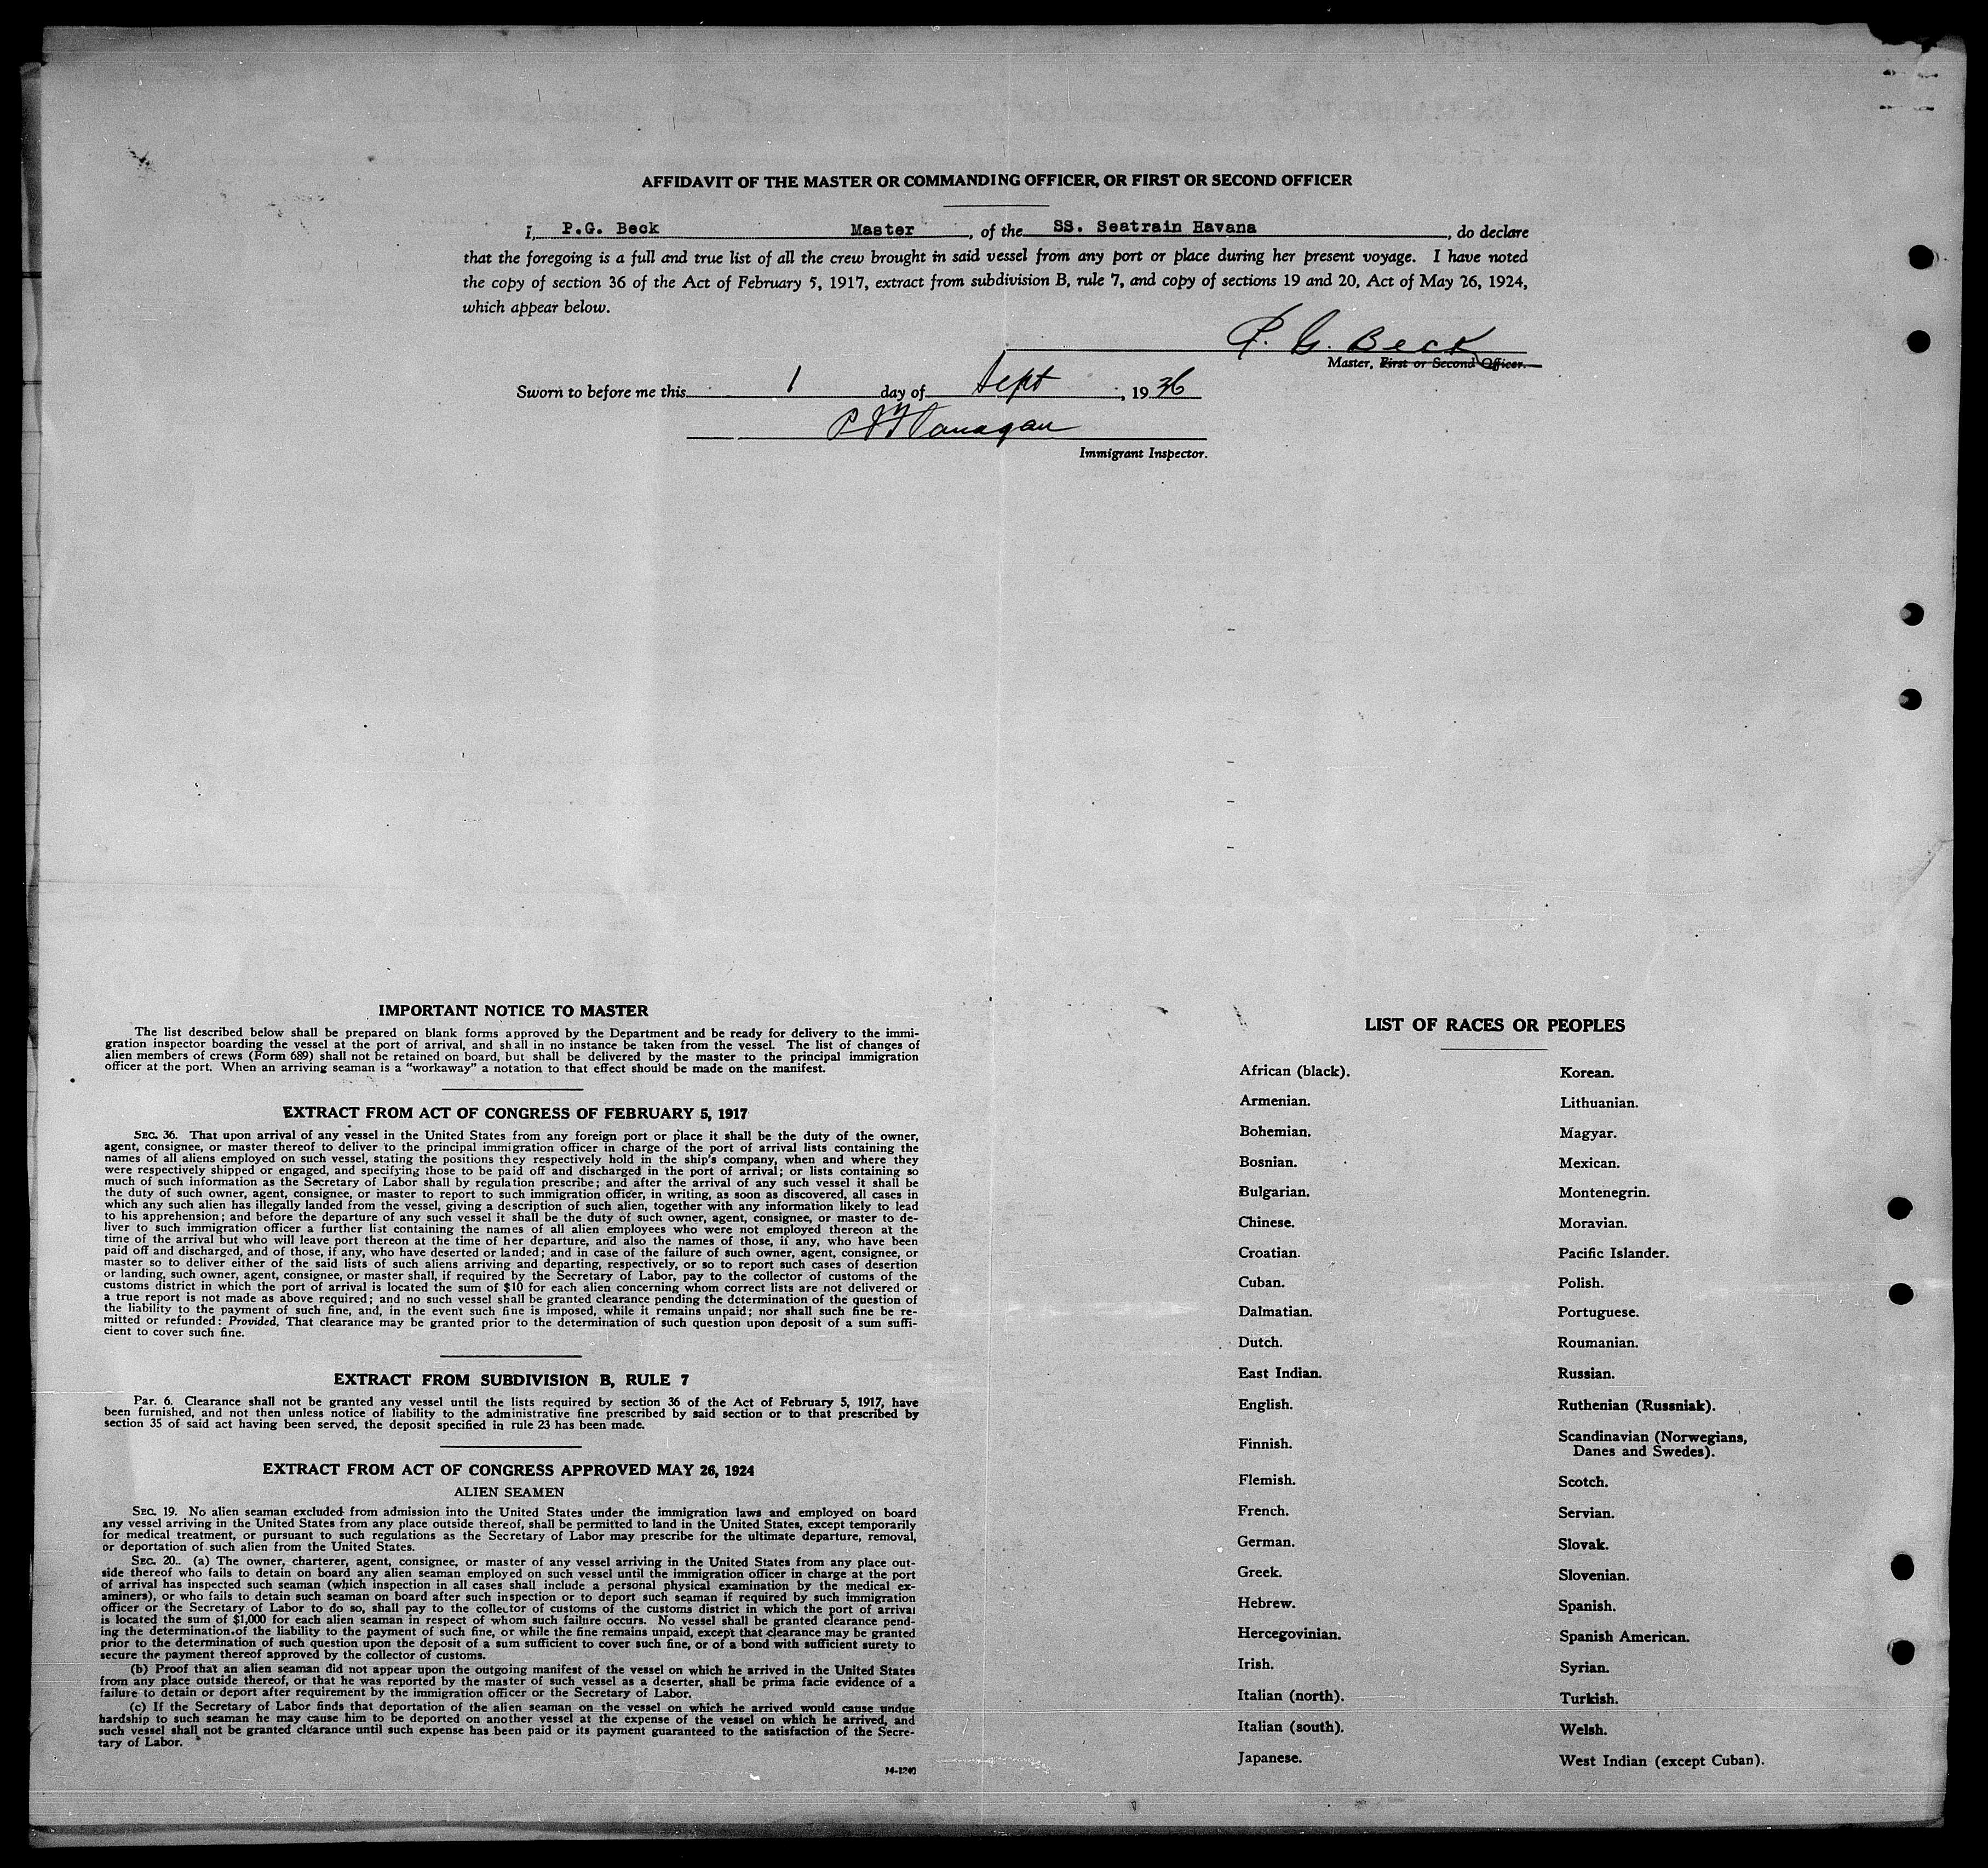 AFFIDAVIT OF THE MASTER OR COMMANDING OFFICER, OR FIRST OR SECOND OFFICER
I, P.G. Beck Master, of the SS. Seatrain Havana, do declare
that the foregoing is a full and true list of all the crew brought in said vessel from any port or place during her present voyage. I have noted
the copy of section 36 of the Act of February 5, 1917, extract from subdivision B, rule 7, and copy of sections 19 and 20, Act of May 26, 1924,
which appear below.
P. G. Beck
Master, First or Second Officer.
Sworn to before me this 1 day of Sept, 1936
Flanagan
Immigrant Inspector.
IMPORTANT NOTICE TO MASTER
The list described below shall be prepared on blank forms approved by the Department and be ready for delivery to the immi-
gration inspector boarding the vessel at the port of arrival, and shall in no instance be taken from the vessel. The list of changes of
alien members of crews (Form 689) shall not be retained on board, but shall be delivered by the master to the principal immigration
officer at the port. When an arriving seaman is a "workaway" a notation to that effect should be made on the manifest.
EXTRACT FROM ACT OF CONGRESS OF FEBRUARY 5, 1917
SEC. 36. That upon arrival of any vessel in the United States from any foreign port or place it shall be the duty of the owner,
agent, consignee, or master thereof to deliver to the principal immigration officer in charge of the port of arrival lists containing the
names of all aliens employed on such vessel, stating the positions they respectively hold in the ship's company, when and where they
were respectively shipped or engaged, and specifying those to be paid off and discharged in the port of arrival; or lists containing so
much of such information as the Secretary of Labor shall by regulation prescribe; and after the arrival of any such vessel it shall be
the duty of such owner, agent, consignee, or master to report to such immigration officer, in writing, as soon as discovered, all cases in
which any such alien has illegally landed from the vessel, giving a description of such alien, together with any information likely to lead
to his apprehension; and before the departure of any such vessel it shall be the duty of such owner, agent, consignee, or master to de-
liver to such immigration officer a further list containing the names of all alien employees who were not employed thereon at the
time of the arrival but who will leave port thereon at the time of her departure, and also the names of those, if any, who have been
paid off and discharged, and of those, if any, who have deserted or landed; and in case of the failure of such owner, agent, consignee, or
master so to deliver either of the said lists of such aliens arriving and departing, respectively, or so to report such cases of desertion
or landing, such owner, agent, consignee, or master shall, if required by the Secretary of Labor, pay to the collector of customs of the
customs district in which the port of arrival is located the sum of $10 for each alien concerning whom correct lists are not delivered or
a true report is not made as above required; and no such vessel shall be granted clearance pending the determination of the question of
the liability to the payment of such fine, and, in the event such fine is imposed, while it remains unpaid; nor shall such fine be re-
mitted or refunded: Provided, That clearance may be granted prior to the determination of such question upon deposit of a sum suffi-
cient to cover such fine.
EXTRACT FROM SUBDIVISION B, RULE 7
Par. 6. Clearance shall not be granted any vessel until the lists required by section 36 of the Act of February 5, 1917, have
been furnished, and not then unless notice of liability to the administrative fine prescribed by said section or to that prescribed by
section 35 of said act having been served, the deposit specified in rule 23 has been made.
EXTRACT FROM ACT OF CONGRESS APPROVED MAY 26, 1924
ALIEN SEAMEN
SEC. 19. No alien seaman excluded from admission into the United States under the immigration laws and employed on board
any vessel arriving in the United States from any place outside thereof, shall be permitted to land in the United States, except temporarily
for medical treatment, or pursuant to such regulations as the Secretary of Labor may prescribe for the ultimate departure, removal,
or deportation of such alien from the United States.
SEC. 20. (a) The owner, charterer, agent, consignee, or master of any vessel arriving in the United States from any place out-
side thereof who fails to detain on board any alien seaman employed on such vessel until the immigration officer in charge at the port
of arrival has inspected such seaman (which inspection in all cases shall include a personal physical examination by the medical ex-
aminers), or who fails to detain such seaman on board after such inspection or to deport such seaman if required by such immigration
officer or the Secretary of Labor to do so, shall pay to the collector of customs of the customs district in which the port of arrival
is located the sum of $1,000 for each alien seaman in respect of whom such failure occurs. No vessel shall be granted clearance pend-
ing the determination of the liability to the payment of such fine, or while the fine remains unpaid, except that clearance may be granted
prior to the determination of such question upon the deposit of a sum sufficient to cover such fine, or of a bond with sufficient surety to
secure the payment thereof approved by the collector of customs.
(b) Proof that an alien seaman did not appear upon the outgoing manifest of the vessel on which he arrived in the United States
from any place outside thereof, or that he was reported by the master of such vessel as a deserter, shall be prima facie evidence of a
failure to detain or deport after requirement by the immigration officer or the Secretary of Labor.
(c) If the Secretary of Labor finds that deportation of the alien seaman on the vessel on which he arrived would cause undue
hardship to such seaman he may cause him to be deported on another vessel at the expense of the vessel on which he arrived, and
such vessel shall not be granted clearance until such expense has been paid or its payment guaranteed to the satisfaction of the Secre-
tary of Labor.
14-1240
LIST OF RACES OR PEOPLES
African (black).
Armenian.
Bohemian.
Bosnian.
Bulgarian.
Chinese.
Croatian.
Cuban.
Dalmatian.
Dutch.
East Indian.
English.
Finnish.
Flemish.
French.
German.
Greek.
Hebrew.
Hercegovinian.
Irish.
Italian (north).
Italian (south).
Japanese.
Korean.
Lithuanian.
Magyar.
Mexican.
Montenegrin.
Moravian.
Pacific Islander.
Polish.
Portuguese.
Roumanian.
Russian.
Ruthenian (Russniak).
Scandinavian (Norwegians,
Danes and Swedes).
Scotch.
Servian.
Slovak.
Slovenian.
Spanish.
Spanish American.
Syrian.
Turkish.
Welsh.
West Indian (except Cuban).